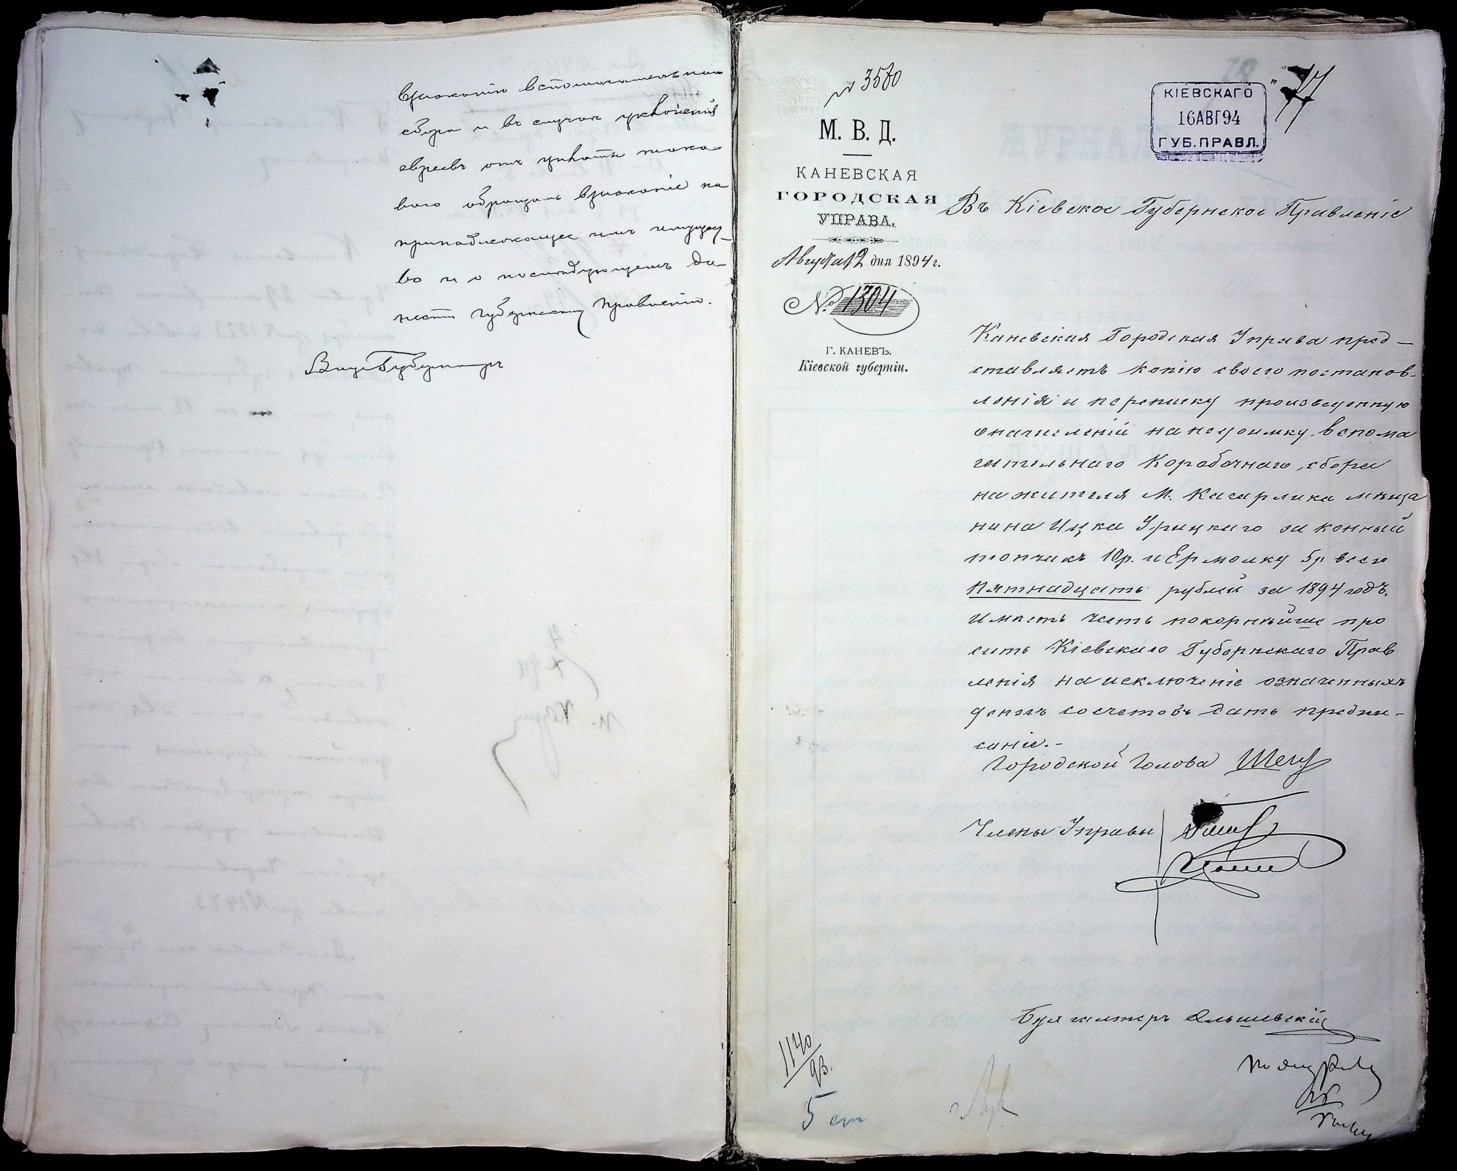 взысканію вспомогательнаго
сбора и въ случаѣ уклоненія
евреевъ отъ уплаты тако-
вого обращать взысканіе на
принадлежащее имъ имущест-
во и о послѣдующемъ до-
нести Губернскому Правленію.
Вице Губернаторъ
№ 3580
77
КІЕВСКАГО
16 АВГ 94
ГУБ. ПРАВЛ.
М. В. Д.
КАНЕВСКАЯ
ГОРОДСКАЯ
УПРАВА.
Августа 12 дня 1894 г.
№ 1304
Г. КАНЕВЪ.
Кіевской губерніи.
Въ Кіевское Губернское Правленіе
Каневская Городская Управа пред-
ставляетъ копію своего постанов-
ленія и переписку произведенную
означеній на недоимку вспома
гательнаго Коробочнаго сбора
на жителя М. Кагарлика мѣща
нина Ицка Урицкаго за конный
топчакъ 10 р. и Ермолку 5 р. всего
Пятнадцать рублей за 1894 годъ,
имѣетъ честь покорнѣйше про
сить Кіевскаго Губернскаго Прав
ленія на исключеніе означенныхъ
денегъ со счетовъ дать предпи-
саніе.-
Городской Голова
Члены Управы
Бухгалтеръ Ольшевскій
1140
93.
5 ст